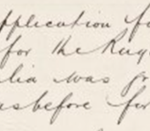 application fo
for the Rug
lia was gr
as before for